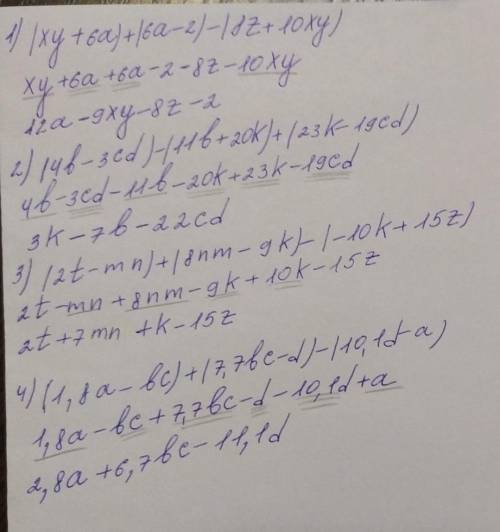 1) (xy+6a)+(6a-2)-(8z+10xy)
xy+6a+6a-2-8z-10xy
12a-9xy-8z-2
2) (4b-3cd)-(11b+20k)+(23k-19cd)
4b-3cd-11b-20k+23k-19cd
3k-7b-22cd
3) (2t-mn)+(8nm-9k)-(-10k+15z)
2t-mn+8nm-9k+10k-15z
2t+7mn+k-15z
4) (1,8a-bc)+(7,7bc-d)-(10,1d-a)
1,8a-bc+7,7bc-d-10,1d+a
2,8a+6,7bc-11,1d